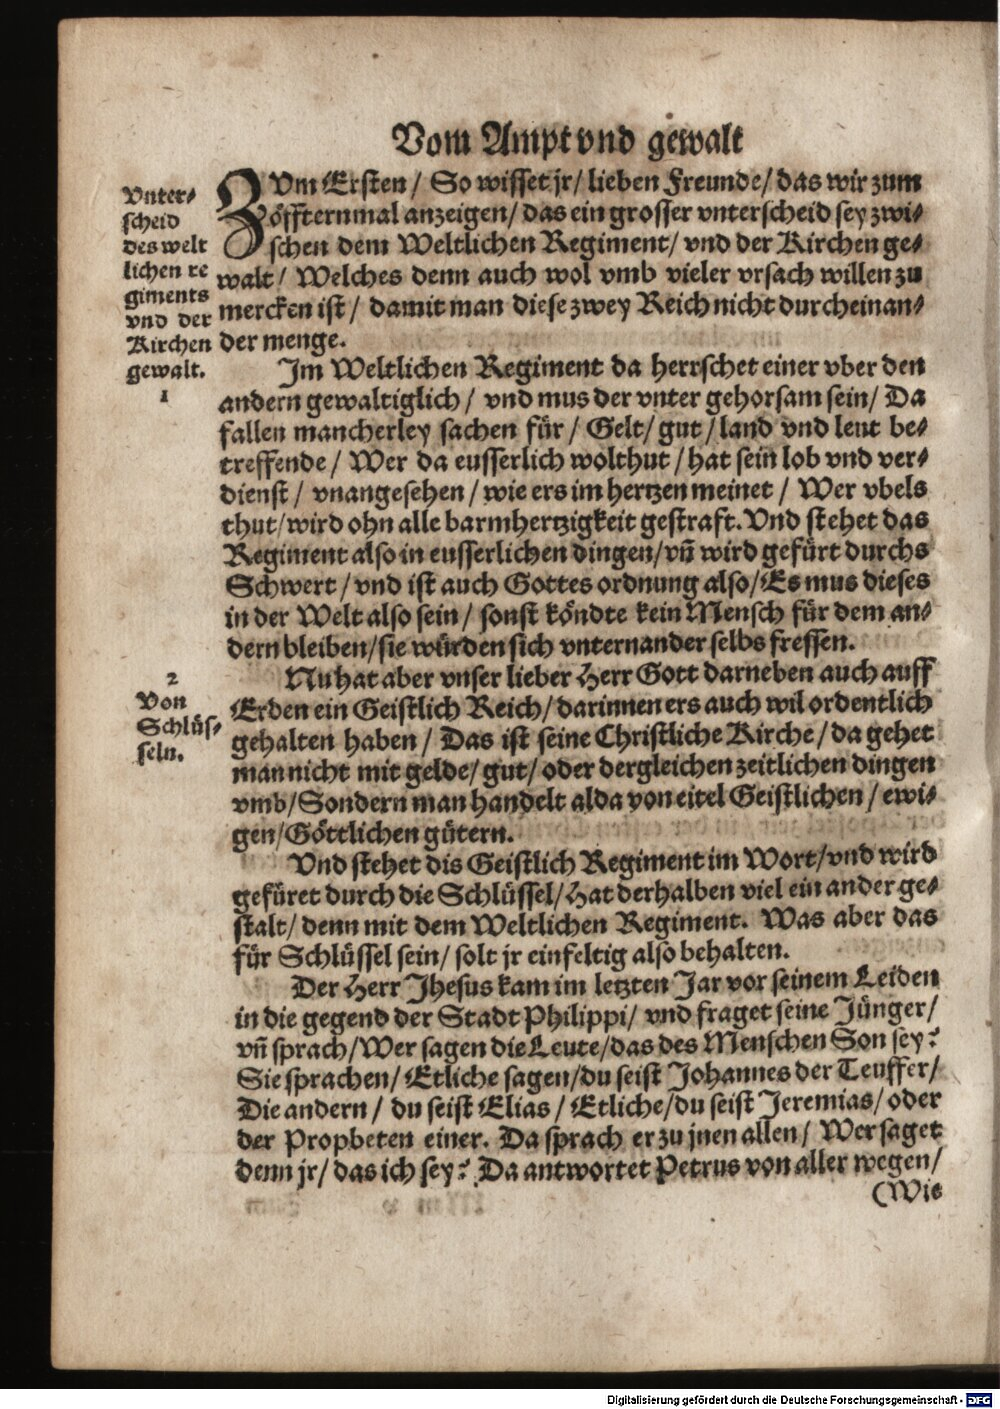 Vom Ampt vnd gewalt
Vnter-
scheid
des welt
lichen re
giments
vnd der
Kirchen
gewalt.
1
ZVm Ersten / So wisset jr / lieben Freunde / das wir zum
öffternmal anzeigen / das ein grosser vnterscheid sey zwi-
schen dem Weltlichen Regiment / vnd der Kirchen ge-
walt / Welches denn auch wol vmb vieler vrsach willen zu
mercken ist / damit man diese zwey Reich nicht durcheinan-
der menge.
Im Weltlichen Regiment da herrschet einer vber den
andern gewaltiglich / vnd mus der vnter gehorsam sein / Da
fallen mancherley sachen für / Gelt / gut / land vnd leut be-
treffende / Wer da eusserlich wolthut / hat sein lob vnd ver-
dienst / vnangesehen / wie ers im hertzen meinet / Wer vbels
thut / wird ohn alle barmhertzigkeit gestraft. Vnd stehet das
Regiment also in eusserlichen dingen / vñ wird gefürt durchs
Schwert / vnd ist auch Gottes ordnung also / Es mus dieses
in der Welt also sein / sonst köndte kein Mensch für dem an-
dern bleiben / sie würden sich vnternander selbs fressen.
2
Von
Schlüs-
seln.
Nu hat aber vnser lieber Herr Gott darneben auch auff
Erden ein Geistlich Reich / darinnen ers auch wil ordentlich
gehalten haben / Das ist seine Christliche Kirche / da gehet
man nicht mit gelde / gut / oder dergleichen zeitlichen dingen
vmb / Sondern man handelt alda von eitel Geistlichen / ewi-
gen / Göttlichen gütern.
Vnd stehet dis Geistlich Regiment im Wort / vnd wird
gefüret durch die Schlüssel / Hat derhalben viel ein ander ge-
stalt / denn mit dem Weltlichen Regiment. Was aber das
für Schlüssel sein / solt jr einfeltig also behalten.
Der Herr Jhesus kam im letzten Jar vor seinem Leiden
in die gegend der Stadt Philippi / vnd fraget seine Jünger /
vñ sprach / Wer sagen die Leute / das des Menschen Son sey?
Sie sprachen / Etliche sagen / du seist Johannes der Teuffer /
Die andern / du seist Elias / Etliche / du seist Jeremias / oder
der Propheten einer. Da sprach er zu jnen allen / Wer saget
denn jr / das ich sey? Da antwortet Petrus von aller wegen /
(Wie
Digitalisierung gefördert durch die Deutsche Forschungsgemeinschaft - DFG